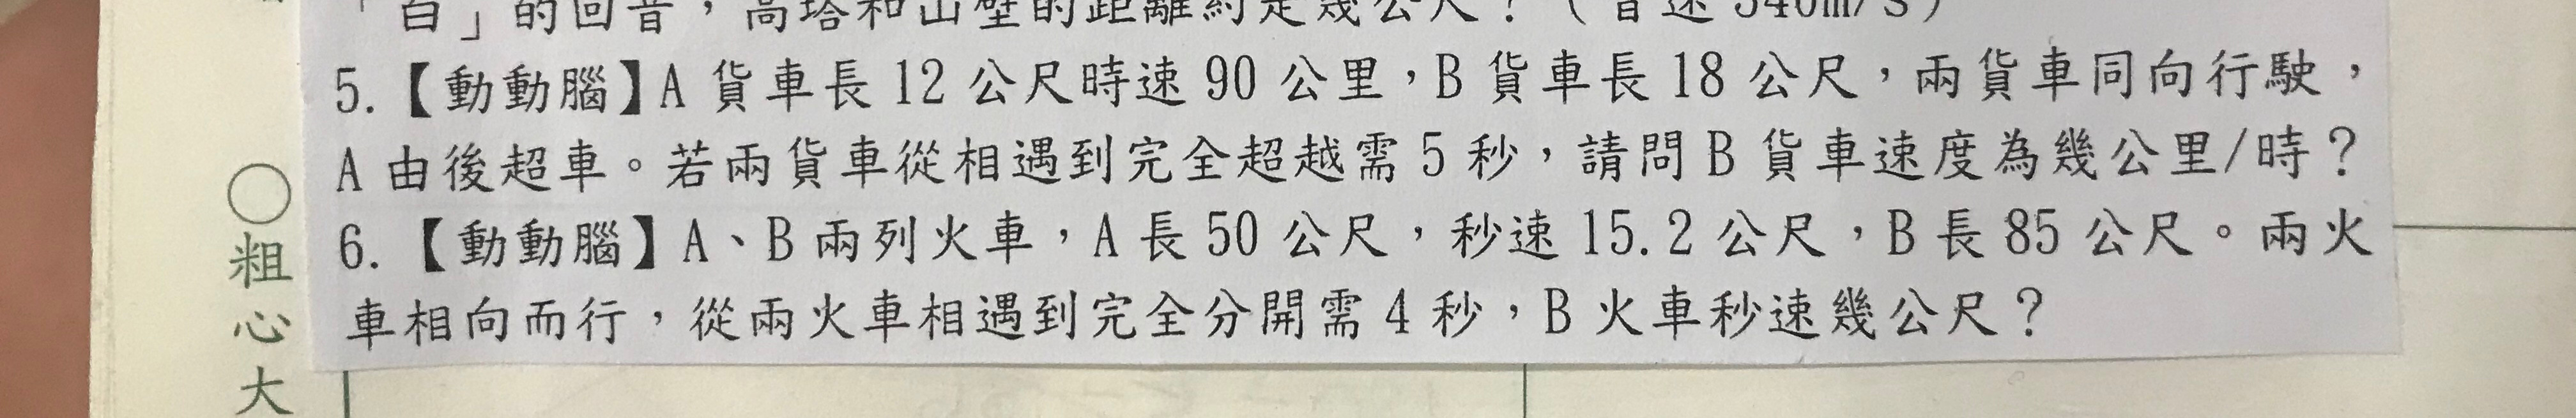 「百」的回音，高塔和山壁的距離約是幾公尺？（音速 340m/s）
5.【動動腦】A 貨車長 12 公尺時速 90 公里，B 貨車長 18 公尺，兩貨車同向行駛，
A 由後超車。若兩貨車從相遇到完全超越需 5 秒，請問 B 貨車速度為幾公里/時？
6.【動動腦】A、B 兩列火車，A 長 50 公尺，秒速 15.2 公尺，B 長 85 公尺。兩火
車相向而行，從兩火車相遇到完全分開需 4 秒，B 火車秒速幾公尺？
○粗心大